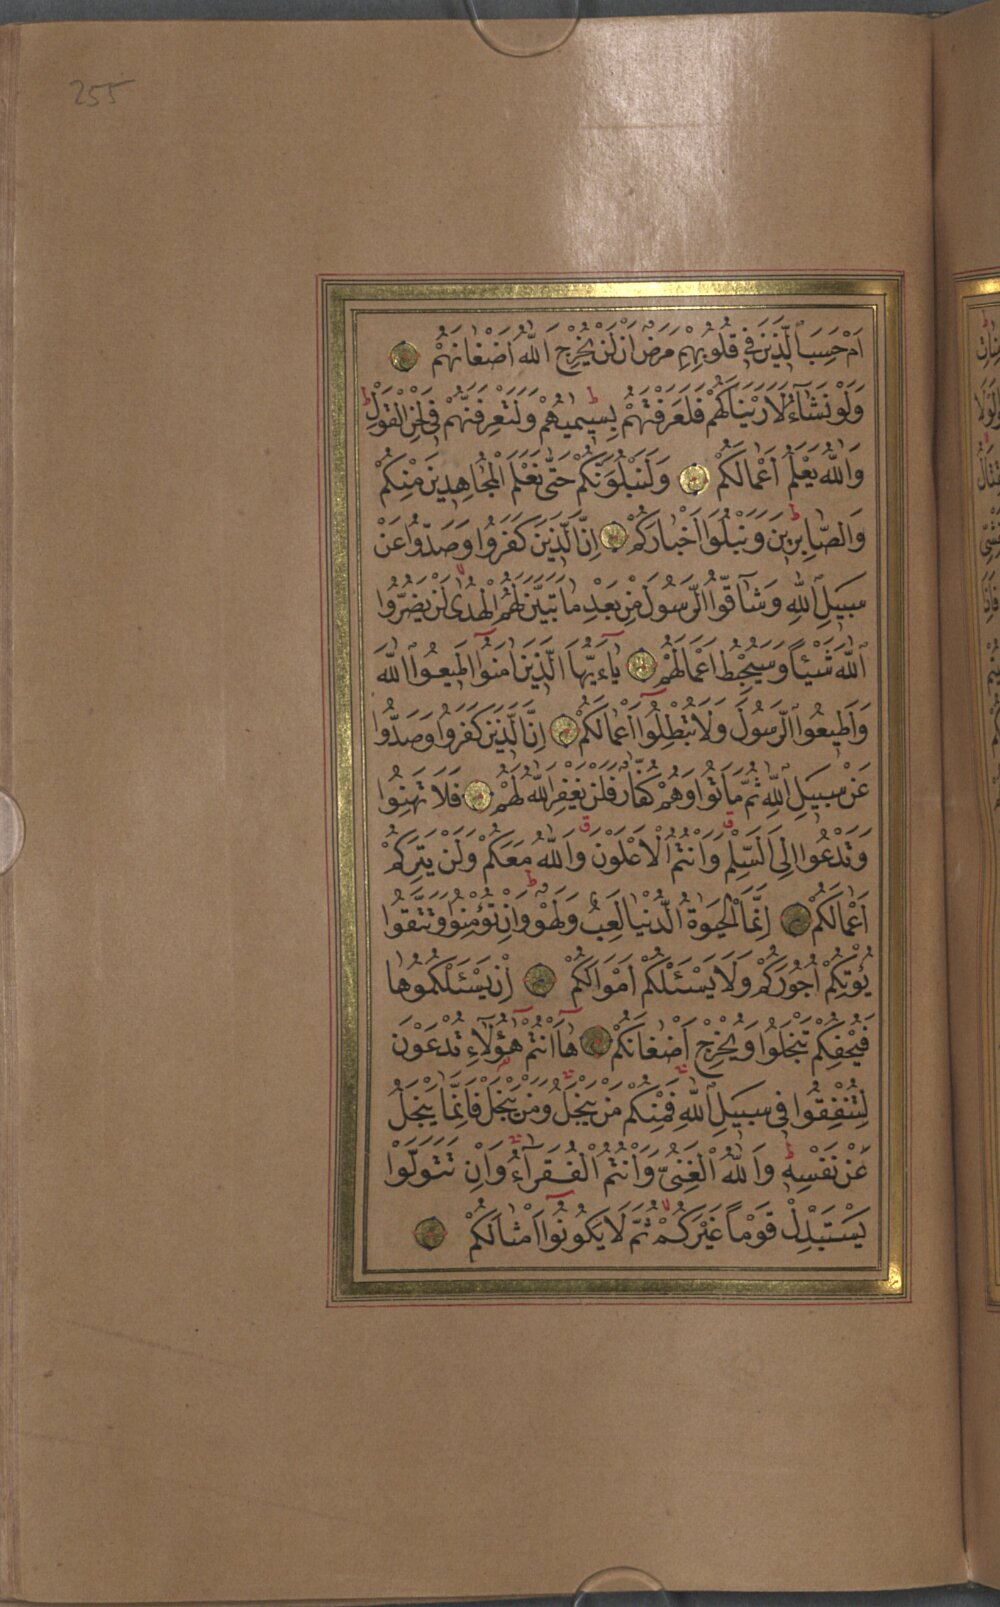 255
اَمْ حَسِبَ الَّذِينَ فِي قُلُوبِهِمْ مَرَضٌ اَنْ لَنْ يُخْرِجَ اللّٰهُ اَضْغَانَهُمْ
وَلَوْ نَشَٓاءُ لَاَرَيْنَاكَهُمْ فَلَعَرَفْتَهُمْ بِسِيمٰيهُمْ وَلَتَعْرِفَنَّهُمْ فِي لَحْنِ الْقَوْلِ ط
وَاللّٰهُ يَعْلَمُ اَعْمَالَكُمْ وَلَنَبْلُوَنَّكُمْ حَتّٰى نَعْلَمَ الْمُجَاهِدِينَ مِنْكُمْ
وَالصَّابِرِينَ ط وَنَبْلُوَا اَخْبَارَكُمْ اِنَّ الَّذِينَ كَفَرُوا وَصَدُّوا عَنْ
سَبِيلِ اللّٰهِ وَشَٓاقُّوا الرَّسُولَ مِنْ بَعْدِ مَا تَبَيَّنَ لَهُمُ الْهُدٰى لا لَنْ يَضُرُّوا
اللّٰهَ شَيْـًٔا وَسَيُحْبِطُ اَعْمَالَهُمْ يَٓاءَيُّهَا الَّذِينَ اٰمَنُٓوا اَطِيعُوا اللّٰهَ
وَاَطِيعُوا الرَّسُولَ وَلَا تُبْطِلُٓوا اَعْمَالَكُمْ اِنَّ الَّذِينَ كَفَرُوا وَصَدُّوا
عَنْ سَبِيلِ اللّٰهِ ثُمَّ مَاتُوا وَهُمْ كُفَّارٌ فَلَنْ يَغْفِرَ اللّٰهُ لَهُمْ فَلَا تَهِنُوا
وَتَدْعُٓوا اِلَى السَّلْمِ ق وَاَنْتُمُ الْاَعْلَوْنَ ق وَاللّٰهُ مَعَكُمْ وَلَنْ يَتِرَكُمْ
اَعْمَالَكُمْ اِنَّمَا الْحَيٰوةُ الدُّنْيَا لَعِبٌ وَلَهْوٌ ط وَاِنْ تُؤْمِنُوا وَتَتَّقُوا
يُؤْتِكُمْ اُجُورَكُمْ وَلَا يَسْـَٔلْكُمْ اَمْوَالَكُمْ اِنْ يَسْـَٔلْكُمُوهَا
فَيُحْفِكُمْ تَبْخَلُوا وَيُخْرِجْ اَضْغَانَكُمْ هَٓا اَنْتُمْ هٰٓؤُلَٓاءِ تُدْعَوْنَ
لِتُنْفِقُوا فِي سَبِيلِ اللّٰهِ فَمِنْكُمْ مَنْ يَبْخَلُ وَمَنْ يَبْخَلْ فَاِنَّمَا يَبْخَلُ
عَنْ نَفْسِهِ ط وَاللّٰهُ الْغَنِيُّ وَاَنْتُمُ الْفُقَرَٓاءُ وَاِنْ تَتَوَلَّوْا
يَسْتَبْدِلْ قَوْمًا غَيْرَكُمْ لا ثُمَّ لَا يَكُونُٓوا اَمْثَالَكُمْ